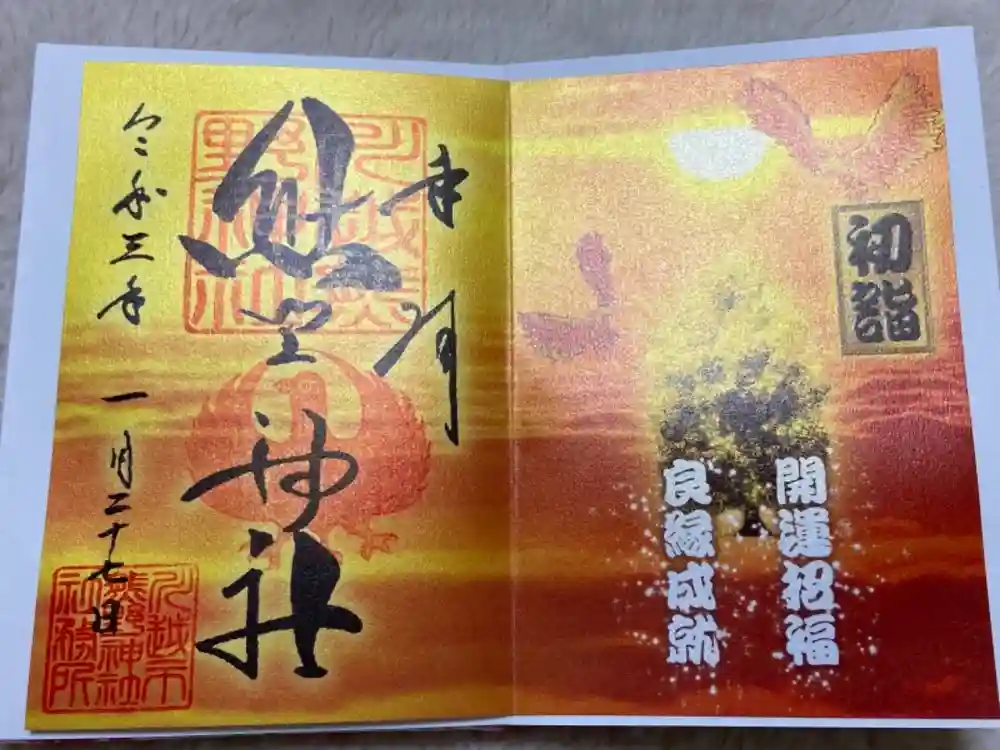 初詣
開運招福
良縁成就
奉拝
熊野神社
令和三年 一月二十七日
川越熊野神社
川越市熊野神社社務所